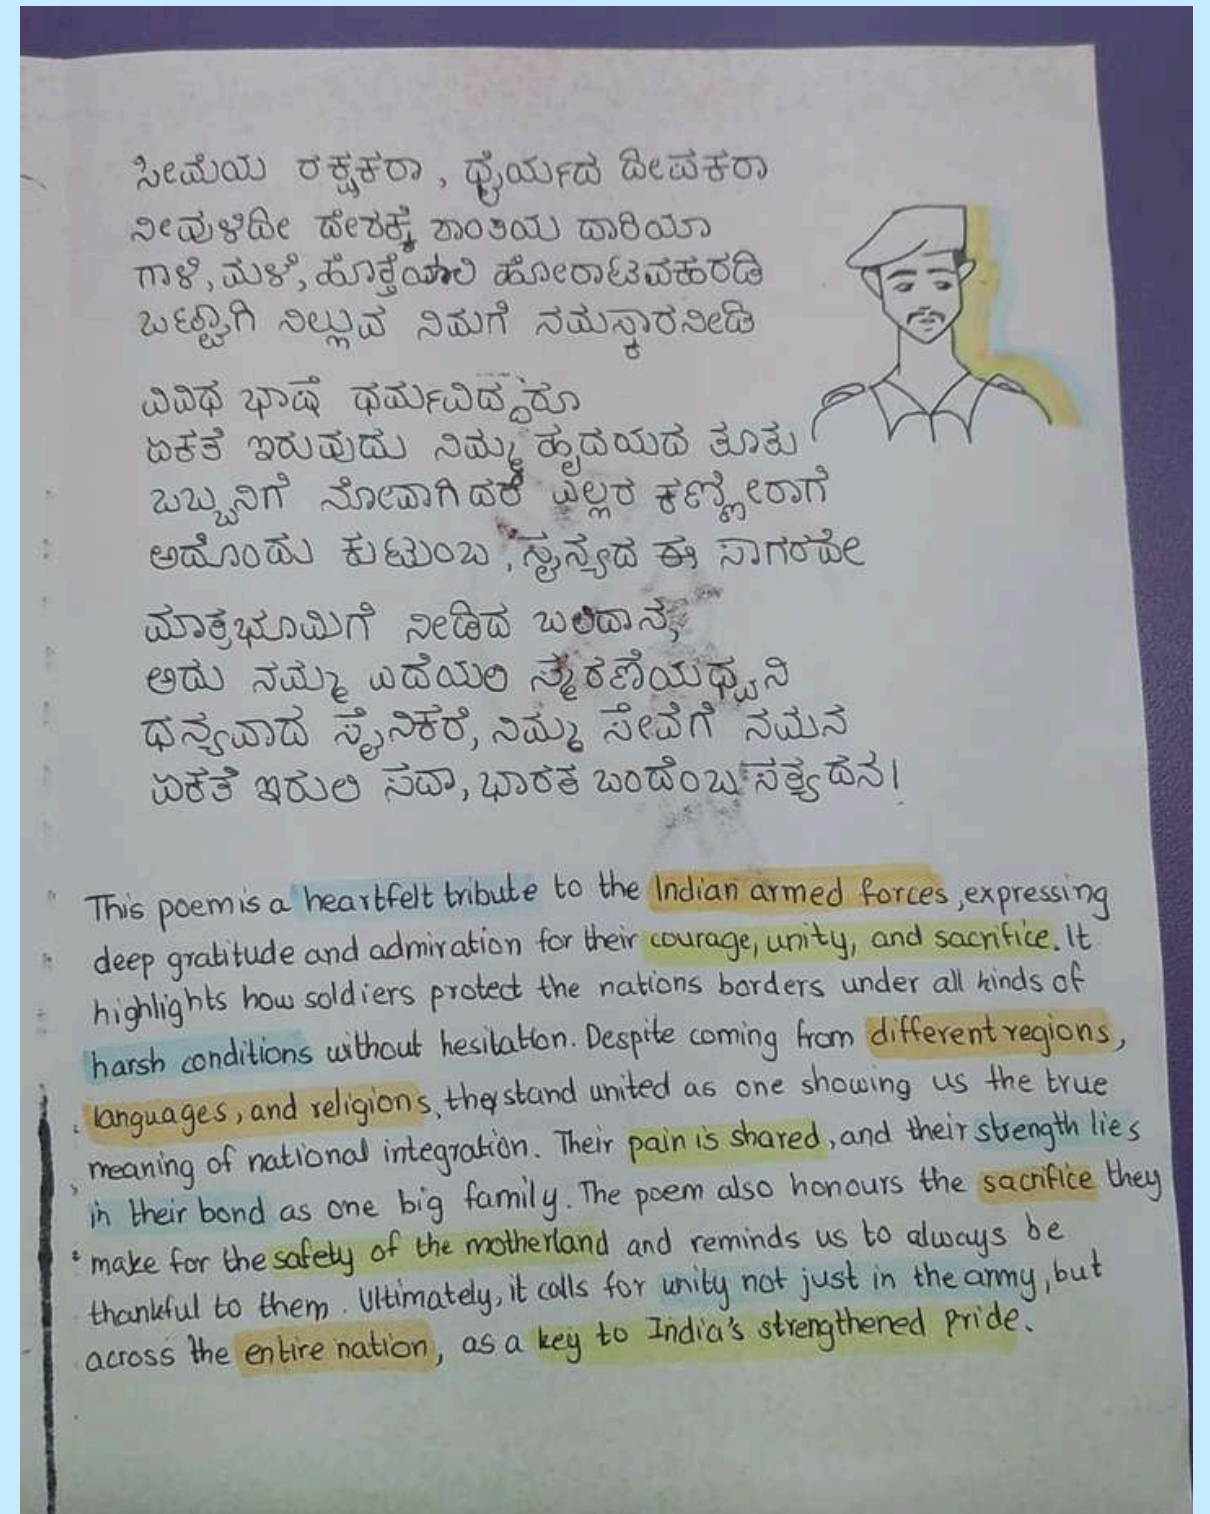 ಸೀಮೆಯ ರಕ್ಷಕರಾ, ಧೈರ್ಯದ ದೀಪಕರಾ
ನೀವುಳಿದೀ ದೇಶಕ್ಕೆ ಶಾಂತಿಯ ದಾರಿಯಾ
ಗಾಳಿ, ಮಳೆ, ಹೊತ್ತೆಯಲಿ ಹೋರಾಟವಹರಡಿ
ಒಟ್ಟಾಗಿ ನಿಲ್ಲುವ ನಿಮಗೆ ನಮಸ್ಕಾರನೀಡಿ
ವಿವಿಧ ಭಾಷೆ ಧರ್ಮವಿದ್ದರೂ
ಏಕತೆ ಇರುವುದು ನಿಮ್ಮ ಹೃದಯದ ತೂತು
ಒಬ್ಬನಿಗೆ ನೋವಾಗಿದರೆ ಎಲ್ಲರ ಕಣ್ಣೀರಾಗೆ
ಅದೊಂದು ಕುಟುಂಬ, ಸೈನ್ಯದ ಈ ಸಾಗರವೇ
ಮಾತ್ರಭೂಮಿಗೆ ನೀಡಿದ ಬಲಿದಾನ,
ಅದು ನಮ್ಮ ಎದೆಯಲಿ ಸ್ಮರಣೆಯಧ್ವನಿ
ಧನ್ಯವಾದ ಸೈನಿಕರೆ, ನಿಮ್ಮ ಸೇವೆಗೆ ನಮನ
ಏಕತೆ ಇರುಲಿ ಸದಾ, ಭಾರತ ಬಂದೆಂಬ ಸತ್ಯದನ।
This poem is a heartfelt tribute to the Indian armed forces, expressing
deep gratitude and admiration for their courage, unity, and sacrifice. It
highlights how soldiers protect the nations borders under all kinds of
harsh conditions without hesitation. Despite coming from different regions,
languages, and religions, they stand united as one showing us the true
meaning of national integration. Their pain is shared, and their strength lies
in their bond as one big family. The poem also honours the sacrifice they
make for the safety of the motherland and reminds us to always be
thankful to them. Ultimately, it calls for unity not just in the army, but
across the entire nation, as a key to India's strengthened pride.